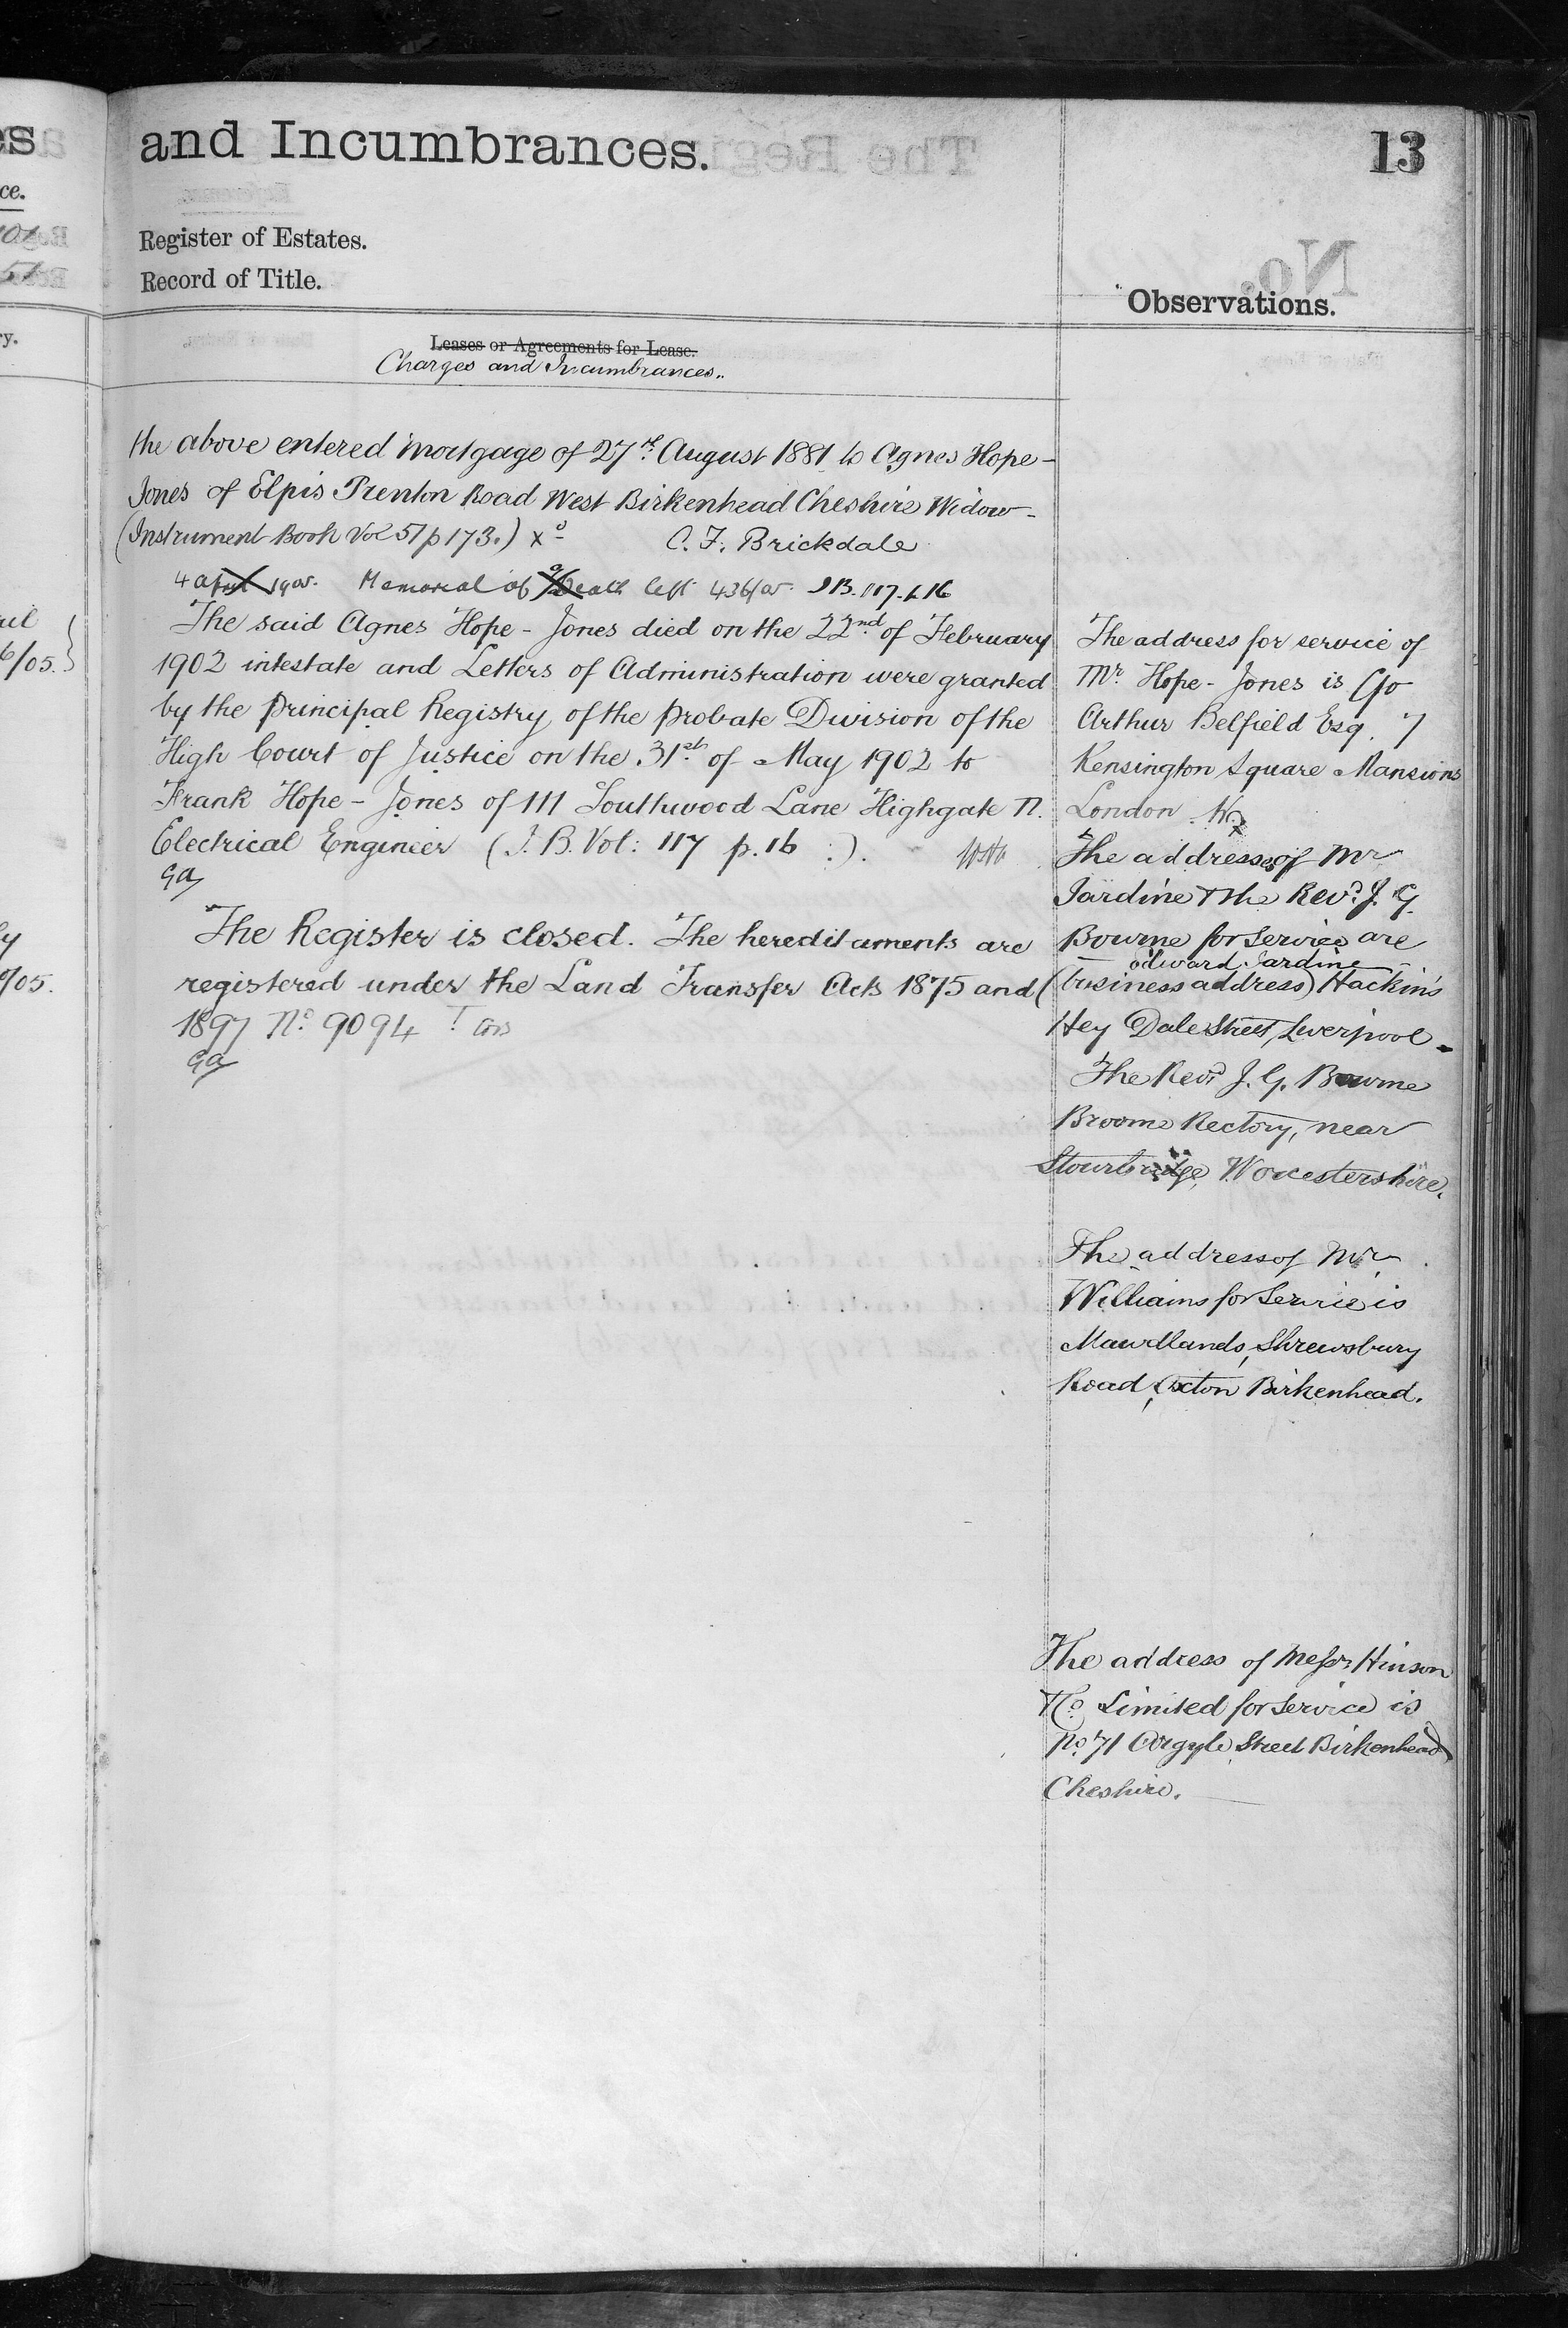 and Incumbrances.
13
Register of Estates.
Record of Title.
Observations.
Leases or Agreements for Lease.
Charges and Incumbrances.
the above entered mortgage of 27th August 1881 to Agnes Hope-
Jones of Elpis Prenton Road West Birkenhead Cheshire Widow-
(Instrument Book Vol 51 p 173.)
C. F. Brickdale
4 April 1905. Memorial of Death left 436/05. IB. 117. p. 16
The said Agnes Hope-Jones died on the 22nd of February
1902 intestate and Letters of Administration were granted
by the Principal Registry of the Probate Division of the
High Court of Justice on the 31st of May 1902 to
Frank Hope-Jones of 111 Southwood Lane Highgate N.
Electrical Engineer (I. B. Vol: 117 p. 16 :).
GA
The Register is closed. The hereditaments are
registered under the Land Transfer Acts 1875 and
1897 No. 9094
GA
The address for service of
Mr. Hope-Jones is C/o
Arthur Belfield Esq. 7
Kensington Square Mansions
London W.
The addresses of Mr
Jardine & the Revd. J. G.
Bourne for Service are
Edward Jardine
(business address) Hackin's
Hey Dale Street, Liverpool-
The Revd J. G. Bourne
Broome Rectory, near
Stourbridge Worcestershire.
The address of Mr
Williams for Service is
Mawdlands, Shrewsbury
Road, Oxton Birkenhead.
The address of Messrs Hinson
& Co. Limited for Service is
No. 71 Argyle Street Birkenhead
Cheshire.
es
ce.
ry.
6/05.